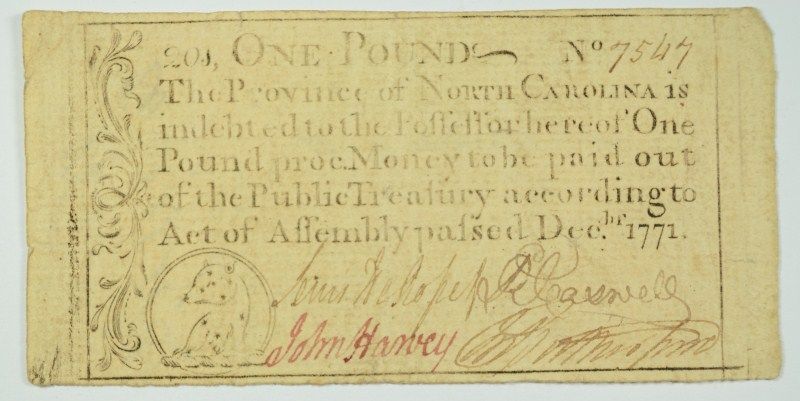 20s, ONE POUND No 7547
The Province of NORTH CAROLINA is
indebted to the Poſſeſſor hereof One
Pound proc. Money to be paid out
of the Public Treaſury according to
Act of Aſſembly paſsed Dec.br 1771.
Rd Caswell
John Harvey